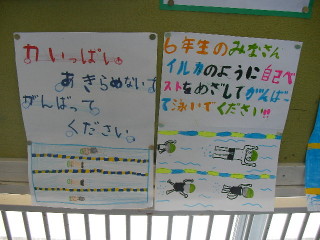 力いっぱい。
あきらめないで
がんばって
ください。
6年生のみなさん
イルカのように自己ベ
ストをめざしてがんばっ
て泳いでください!!!